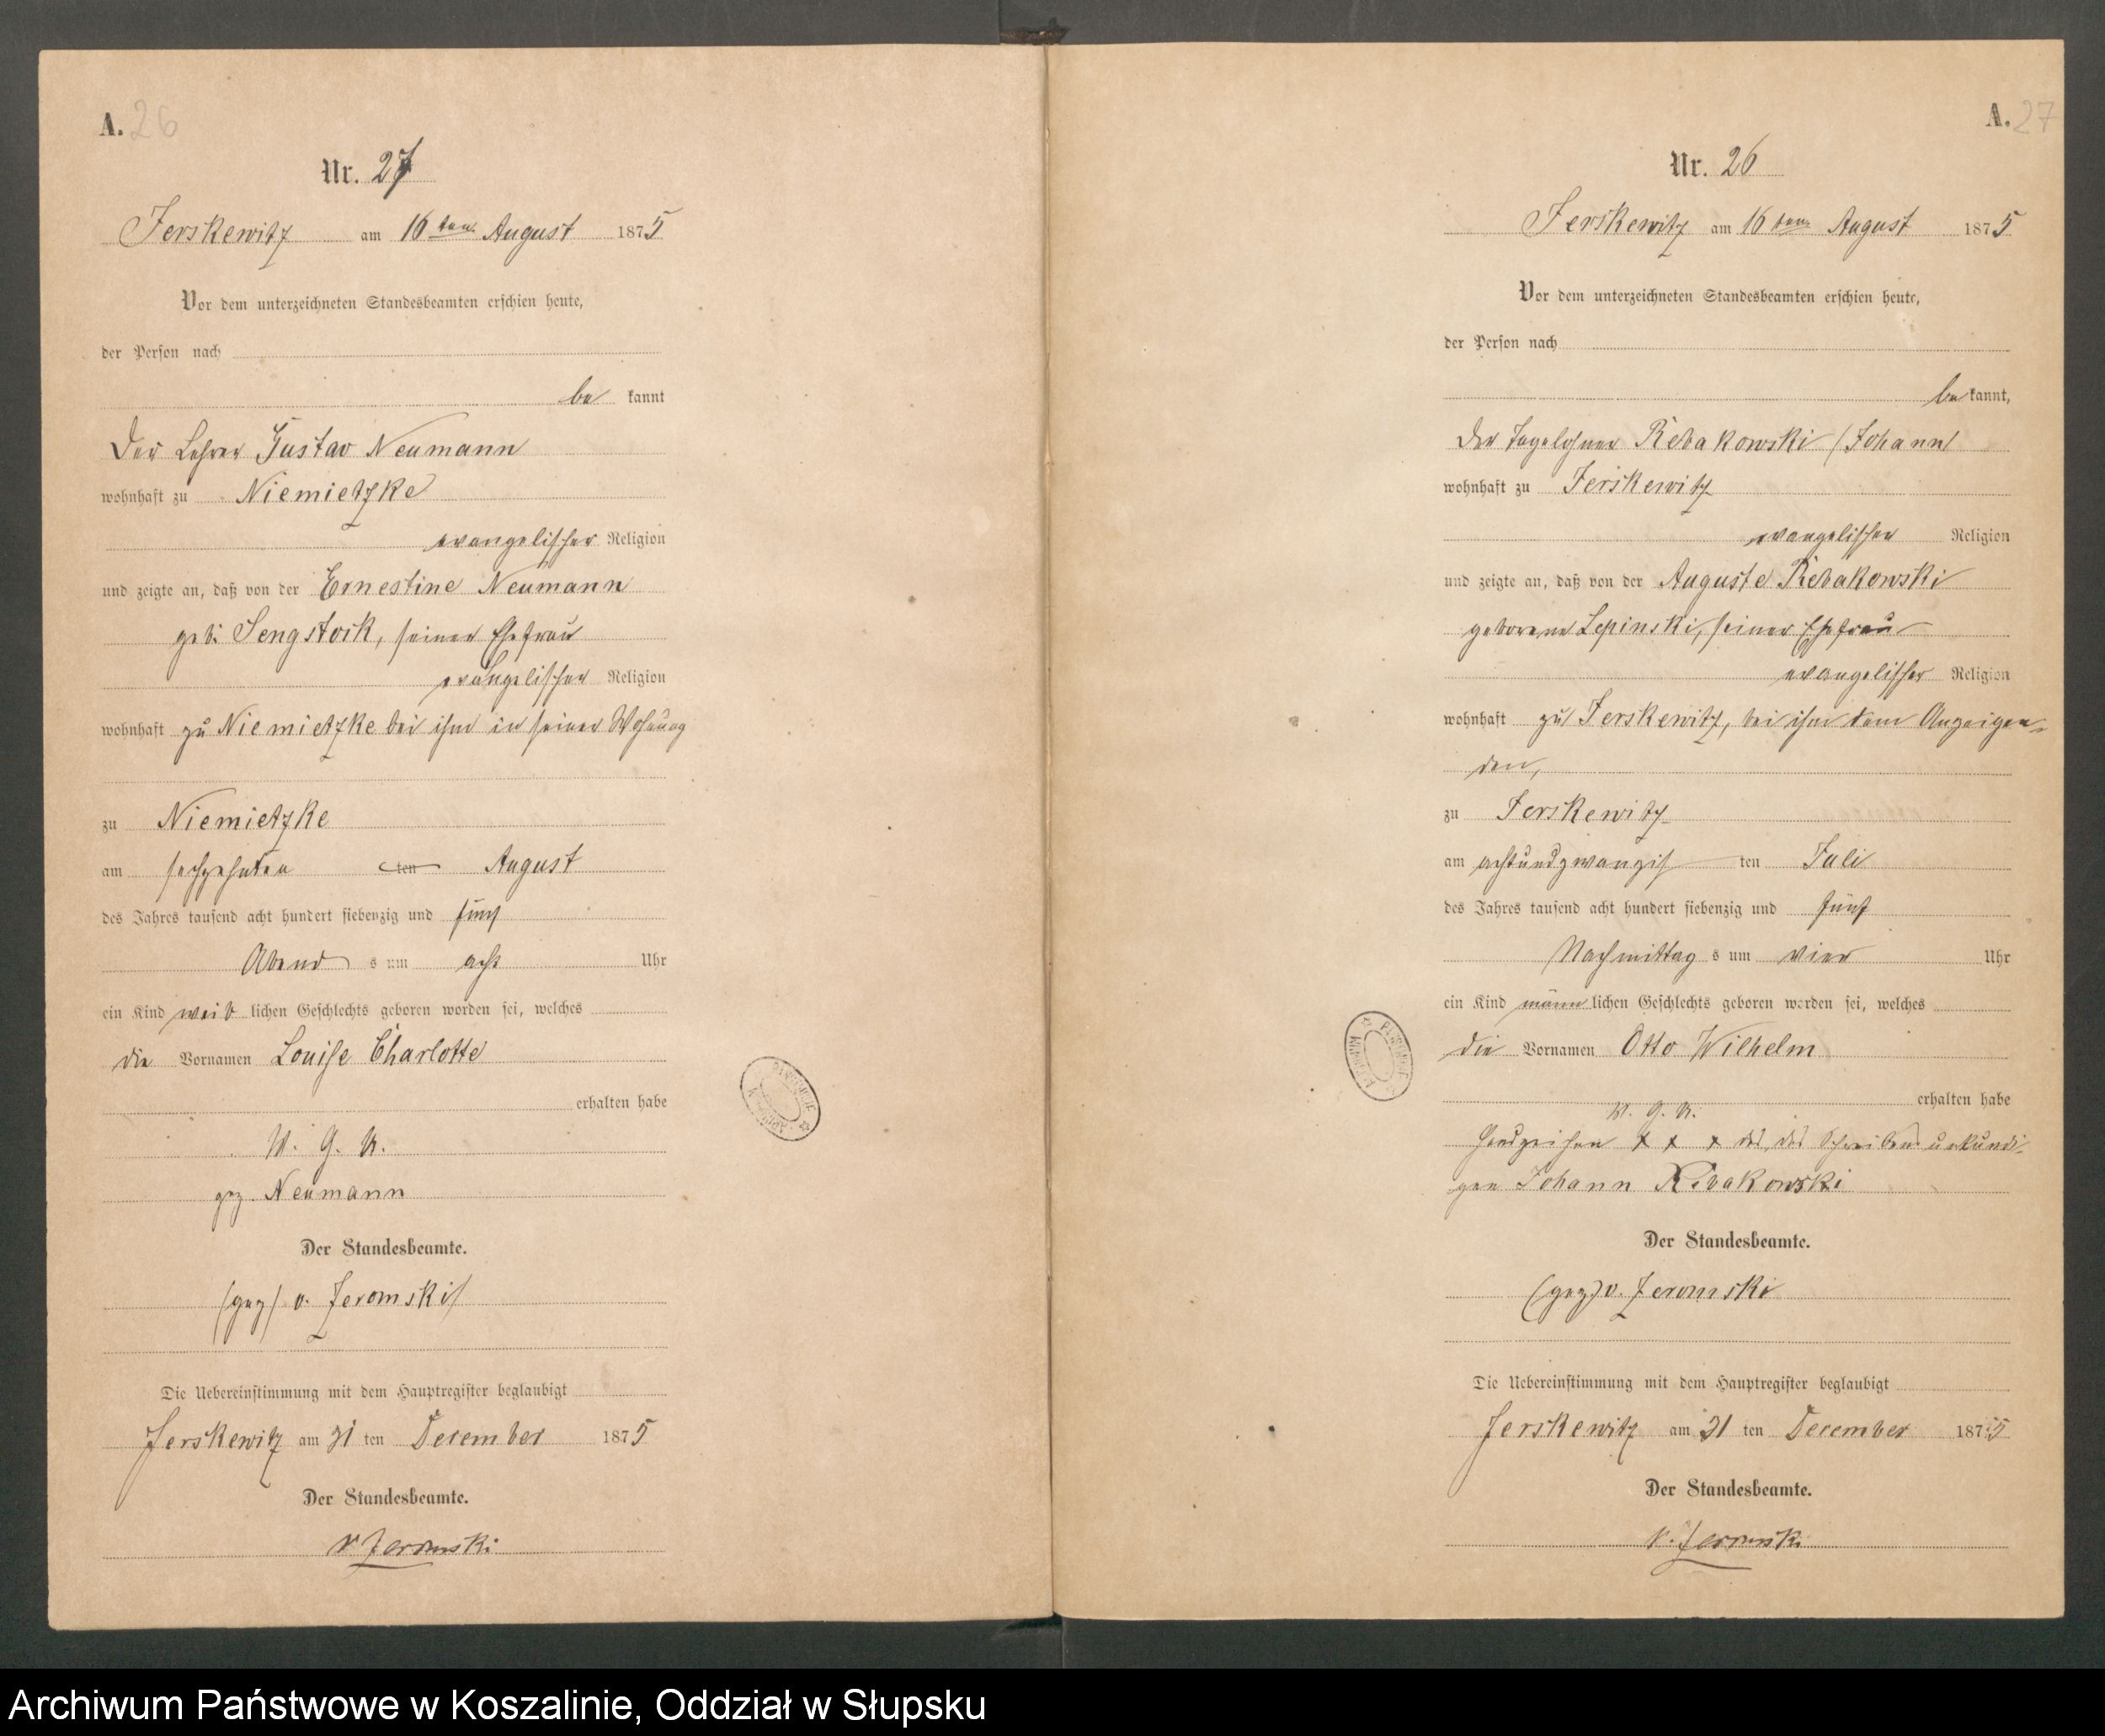 A. 26
Nr. 27
Jerskewitz am 16ten August 1875
Vor dem unterzeichneten Standesbeamten erschien heute,
der Person nach
be kannt
Der Lehrer Gustav Neumann
wohnhaft zu Niemietzke
evangelischer Religion
und zeigte an, daß von der Ernestine Neumann
geb: Sengstock, seiner Ehefrau
evangelischer Religion
wohnhaft zu Niemietzke bei ihm in seiner Wohnung
zu Niemietzke
am sechzehnten ten August
des Jahres tausend acht hundert siebenzig und fünf
Abend s um acht Uhr
ein Kind weib lichen Geschlechts geboren worden sei, welches
die Vornamen Louise Charlotte
erhalten habe
V. G. U.
gez. Neumann
Der Standesbeamte.
(gez) v. Zeromski
Die Uebereinstimmung mit dem Hauptregister beglaubigt
Jerskewitz am 31 ten December 1875
Der Standesbeamte.
v. Zeromski
A. 27
Nr. 26
Jerskewitz am 16ten August 1875
Vor dem unterzeichneten Standesbeamten erschien heute,
der Person nach
be kannt,
Der Tagelöhner Rebakowski (Johann)
wohnhaft zu Jerskewitz
evangelischer Religion
und zeigte an, daß von der Auguste Rebakowski
geborene Lepinski, seiner Ehefrau
evangelischer Religion
wohnhaft zu Jerskewitz, bei ihm dem Anzeigen-
den,
zu Jerskewitz
am achtundzwanzigs ten Juli
des Jahres tausend acht hundert siebenzig und fünf
Nachmittag s um vier Uhr
ein Kind männ lichen Geschlechts geboren worden sei, welches
die Vornamen Otto Wilhelm
erhalten habe
V. G. U.
Handzeichen x x x des, des Schreibens unkundi-
gen Johann Rebakowski
Der Standesbeamte.
(gez) v. Zeromski
Die Uebereinstimmung mit dem Hauptregister beglaubigt
Jerskewitz am 31 ten December 1875
Der Standesbeamte.
v. Zeromski
Archiwum Państwowe w Koszalinie, Oddział w Słupsku